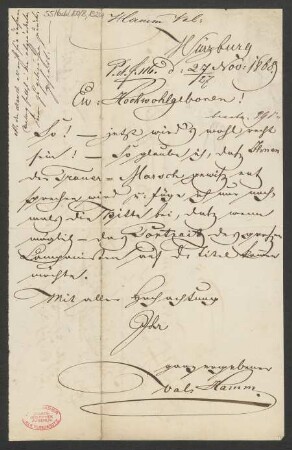 Hamm Val.
Würzburg
d. 27 Nov. 1865
Ew Hochwohlgeboren!
So! — jetzt wird's wohl recht
sein! — So glaube ich, daß Ihnen
der Trauer-Marsch gewiß ent
sprechen wird u. füge ich nur noch
mals die Bitte bei, daß wenn
möglich — das Portrait des großen
Componisten auf d. Titel kommen
möchte.
Mit aller Hochachtung
Ihr
ganz ergebener
Val. Hamm.